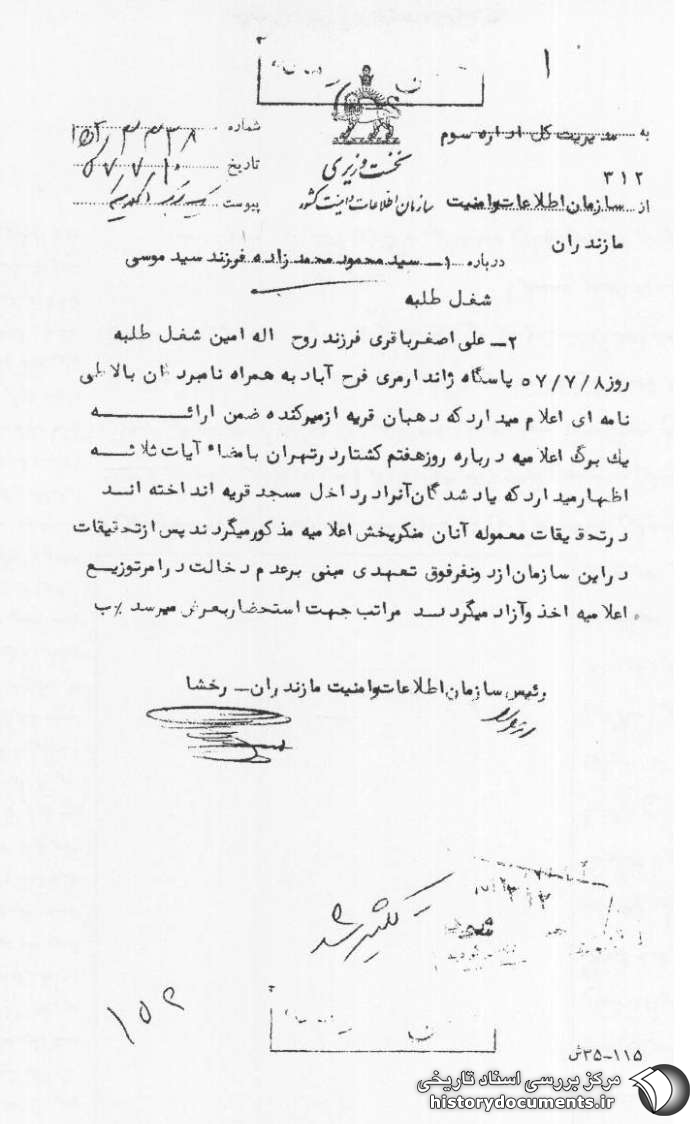 ۱
به مدیریت کل اداره سوم
۳۱۲
از سازمان اطلاعات وامنیت
مازندران
نخست وزیری
سازمان اطلاعات و امنیت کشور
شماره
تاریخ
پیوست
درباره ۱ــ سید محمود محمد زاده فرزند سید موسی
شغل طلبه
۲ــ علی اصغر باقری فرزند روح اله امین شغل طلبه
روز ۵۷/۷/۸ پاسگاه ژاندارمری فرح آباد به همراه نامبردگان بالا طی
نامه ای اعلام میدارد که دهبان قریه ازمیرکنده ضمن ارائه
یك برگ اعلامیه درباره روز هفتم کشتار در تهران با مضاء آیات ثلاثه
اظهار میدارد که یاد شدگان آنرا در داخل مسجد قریه انداخته انـد
در تحقیقات معموله آنان منکر پخش اعلامیه مذکور میگردند پس از تحقیقات
در این سازمان از دو نفر فوق تعهدی مبنی بر عدم دخالت در امر توزیـع
اعلامیه اخذ و آزاد میگردند مراتب جهت استحضار بعرض میرسد ٪ب
رئیس سازمان اطلاعات وامنیت مازندران ــ رخشا
تکثیر شد
۱۵۹
۱۱۵-۳۵ش
مرکز بررسی اسناد تاریخی
historydocuments.ir